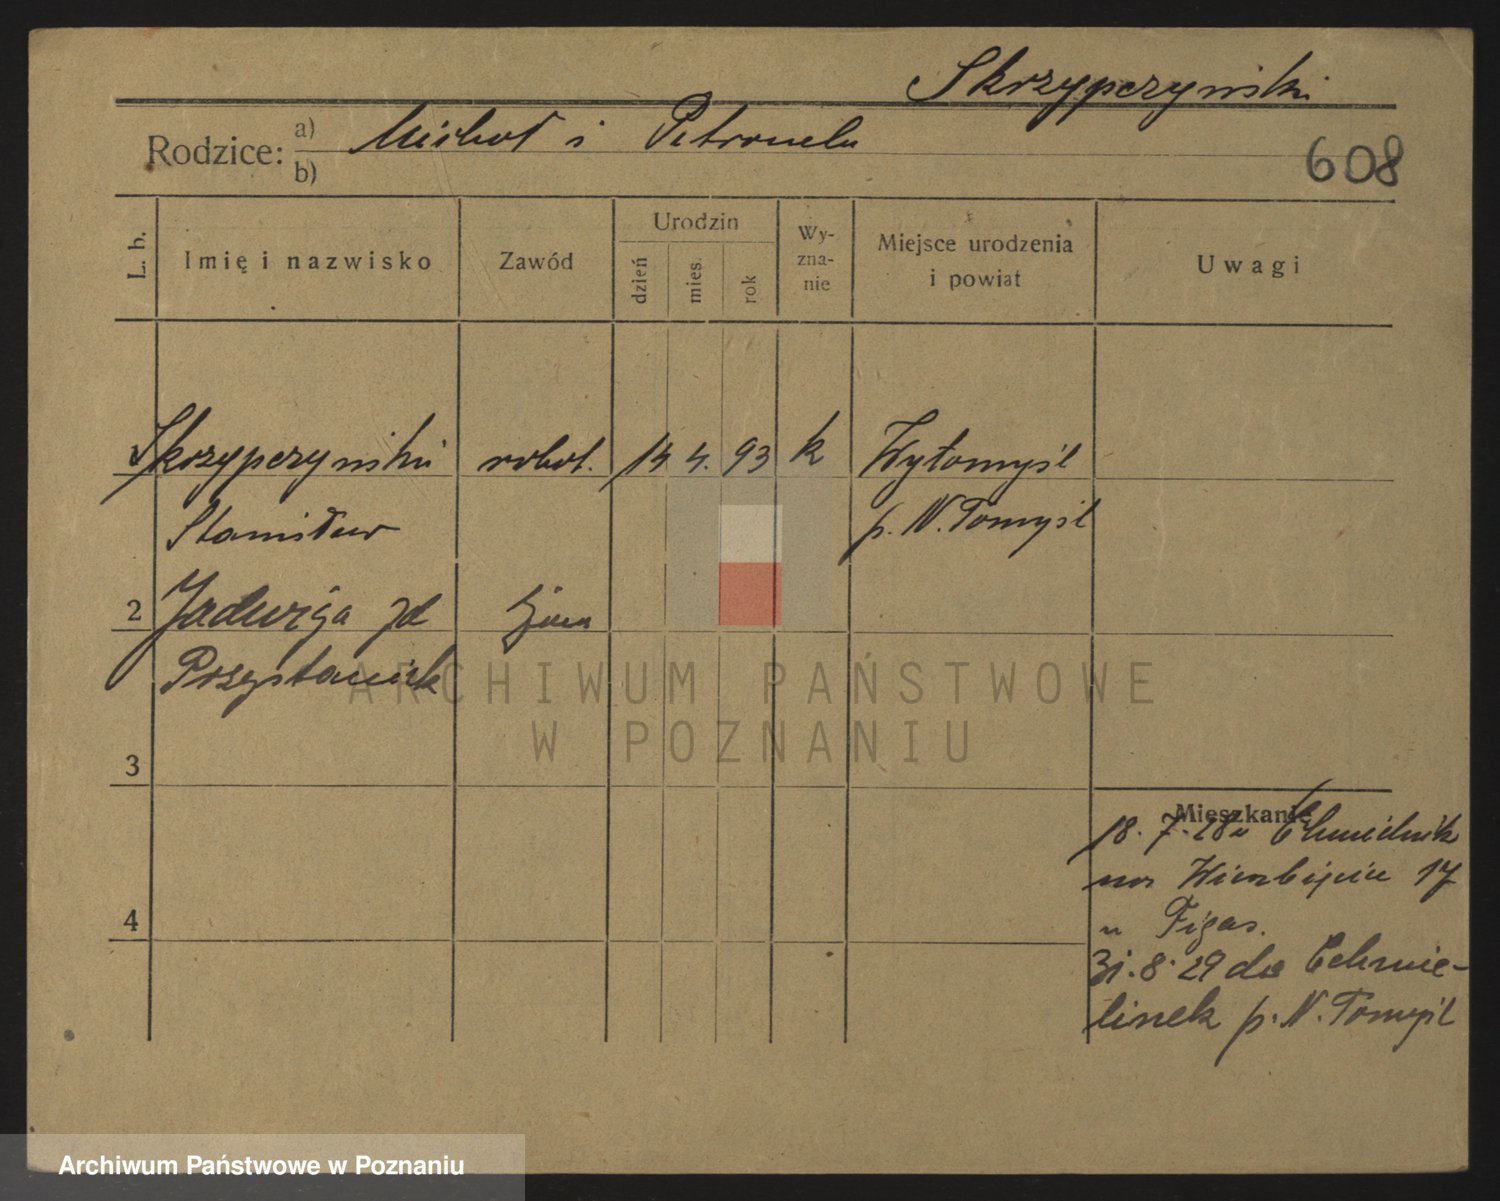 Skrzypczyński
Rodzice: a) Michał i Petronela
b)
608
L. b.
Imię i nazwisko
Zawód
Urodzin
dzień
mies.
rok
Wy-
zna-
nie
Miejsce urodzenia
i powiat
Uwagi
Skrzypczyński robot. 14 4. 93 k Wytomyśl
Stanisław p. N. Tomyśl
2 Jadwiga zd żona
Przystaniak
ARCHIWUM PAŃSTWOWE
W POZNANIU
3
Mieszkanie
18. 7. 28
na Wierzbięcice 17
u Figas.
4
31. 8. 29 do Chmie-
linek p. N. Tomyśl
Archiwum Państwowe w Poznaniu